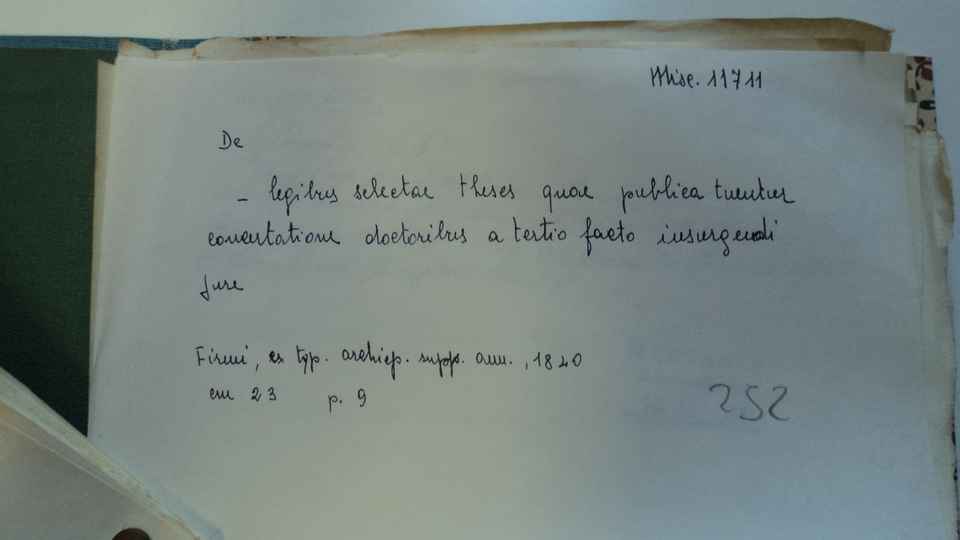 Misc. 11711
De
- legibus selectae theses quae publica tuentur
concertatione doctoribus a tertio facto insurgendi
jure
Firmi, ex typ. archiep. supp. ann., 1840
cm 23 p. 9
252